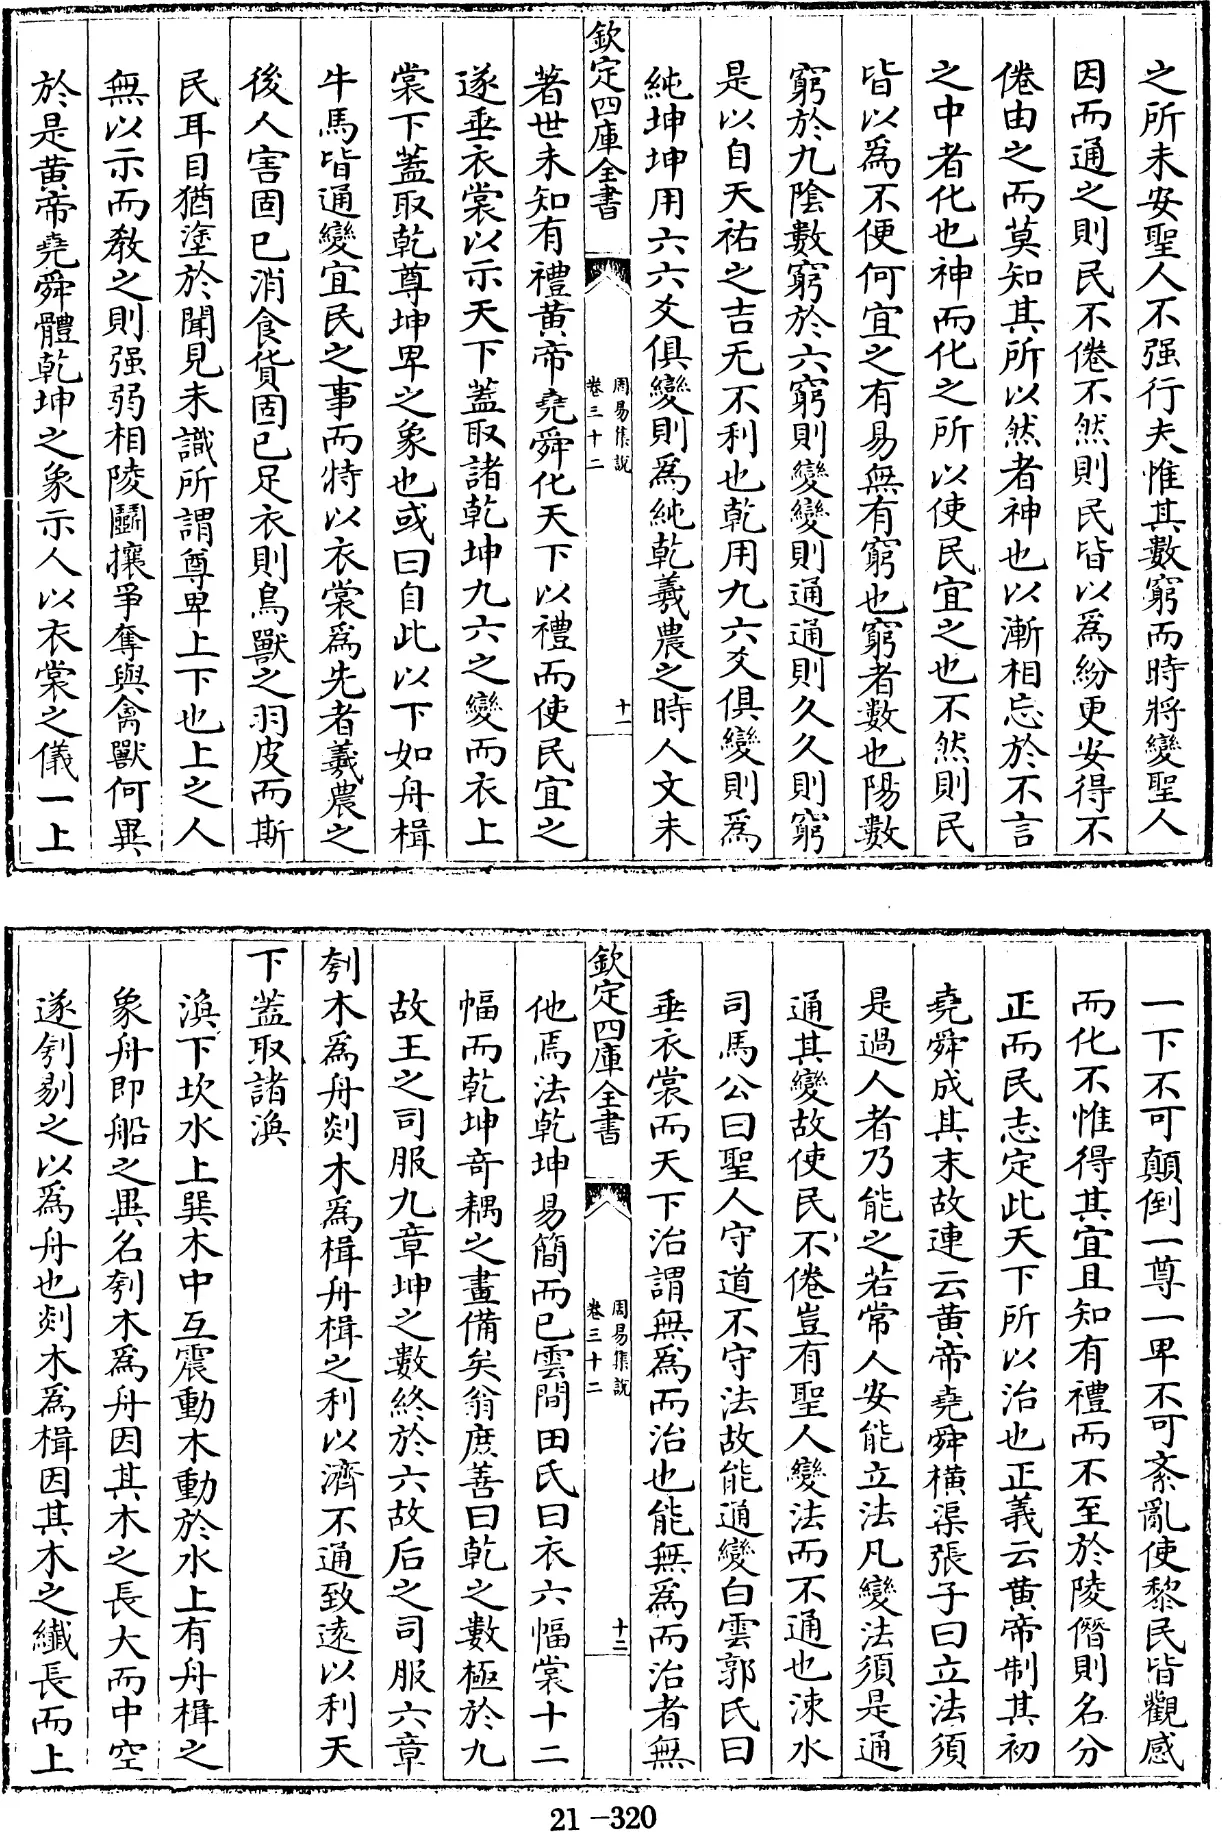 之所未安聖人不强行夫惟其數窮而時將變聖人
因而通之則民不倦不然則民皆以爲紛更安得不
倦由之而莫知其所以然者神也以漸相忘於不言
之中者化也神而化之所以使民宜之也不然則民
皆以爲不便何宜之有易無有窮也窮者數也陽數
窮於九陰數窮於六窮則變變則通通則久久則窮
是以自天祐之吉无不利也乾用九六爻俱變則爲
純坤坤用六六爻俱變則爲純乾羲農之時人文未
欽定四庫全書
周易集說
卷三十二
十一
著世未知有禮黄帝堯舜化天下以禮而使民宜之
遂垂衣裳以示天下蓋取諸乾坤九六之變而衣上
裳下蓋取乾尊坤卑之象也或曰自此以下如舟楫
牛馬皆通變宜民之事而特以衣裳爲先者羲農之
後人害固已消食貨固已足衣則鳥獸之羽皮而斯
民耳目猶塗於聞見未識所謂尊卑上下也上之人
無以示而敎之則强弱相陵鬭攘爭奪與禽獸何異
於是黄帝堯舜體乾坤之象示人以衣裳之儀一上
一下不可顛倒一尊一卑不可紊亂使黎民皆觀感
而化不惟得其宜且知有禮而不至於陵僭則名分
正而民志定此天下所以治也正義云黄帝制其初
堯舜成其末故連云黄帝堯舜橫渠張子曰立法須
是過人者乃能之若常人安能立法凡變法須是通
通其變故使民不倦豈有聖人變法而不通也涑水
司馬公曰聖人守道不守法故能通變白雲郭氏曰
垂衣裳而天下治謂無爲而治也能無爲而治者無
欽定四庫全書
周易集說
卷三十二
十二
他焉法乾坤易簡而已雲間田氏曰衣六幅裳十二
幅而乾坤奇耦之畫備矣翁庶善曰乾之數極於九
故王之司服九章坤之數終於六故后之司服六章
刳木爲舟剡木爲楫舟楫之利以濟不通致遠以利天
下蓋取諸渙
渙下坎水上巽木中互震動木動於水上有舟楫之
象舟即船之異名刳木爲舟因其木之長大而中空
遂刳剔之以爲舟也剡木爲楫因其木之纖長而上
21-320